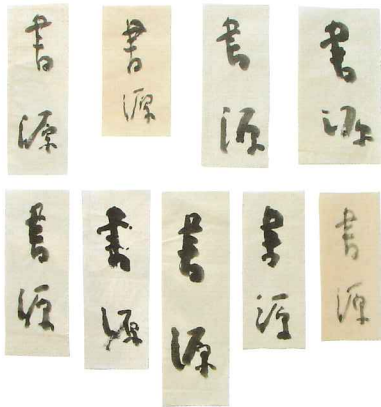 書源
書源
書源
書源
書源
書源
書源
書源
書源